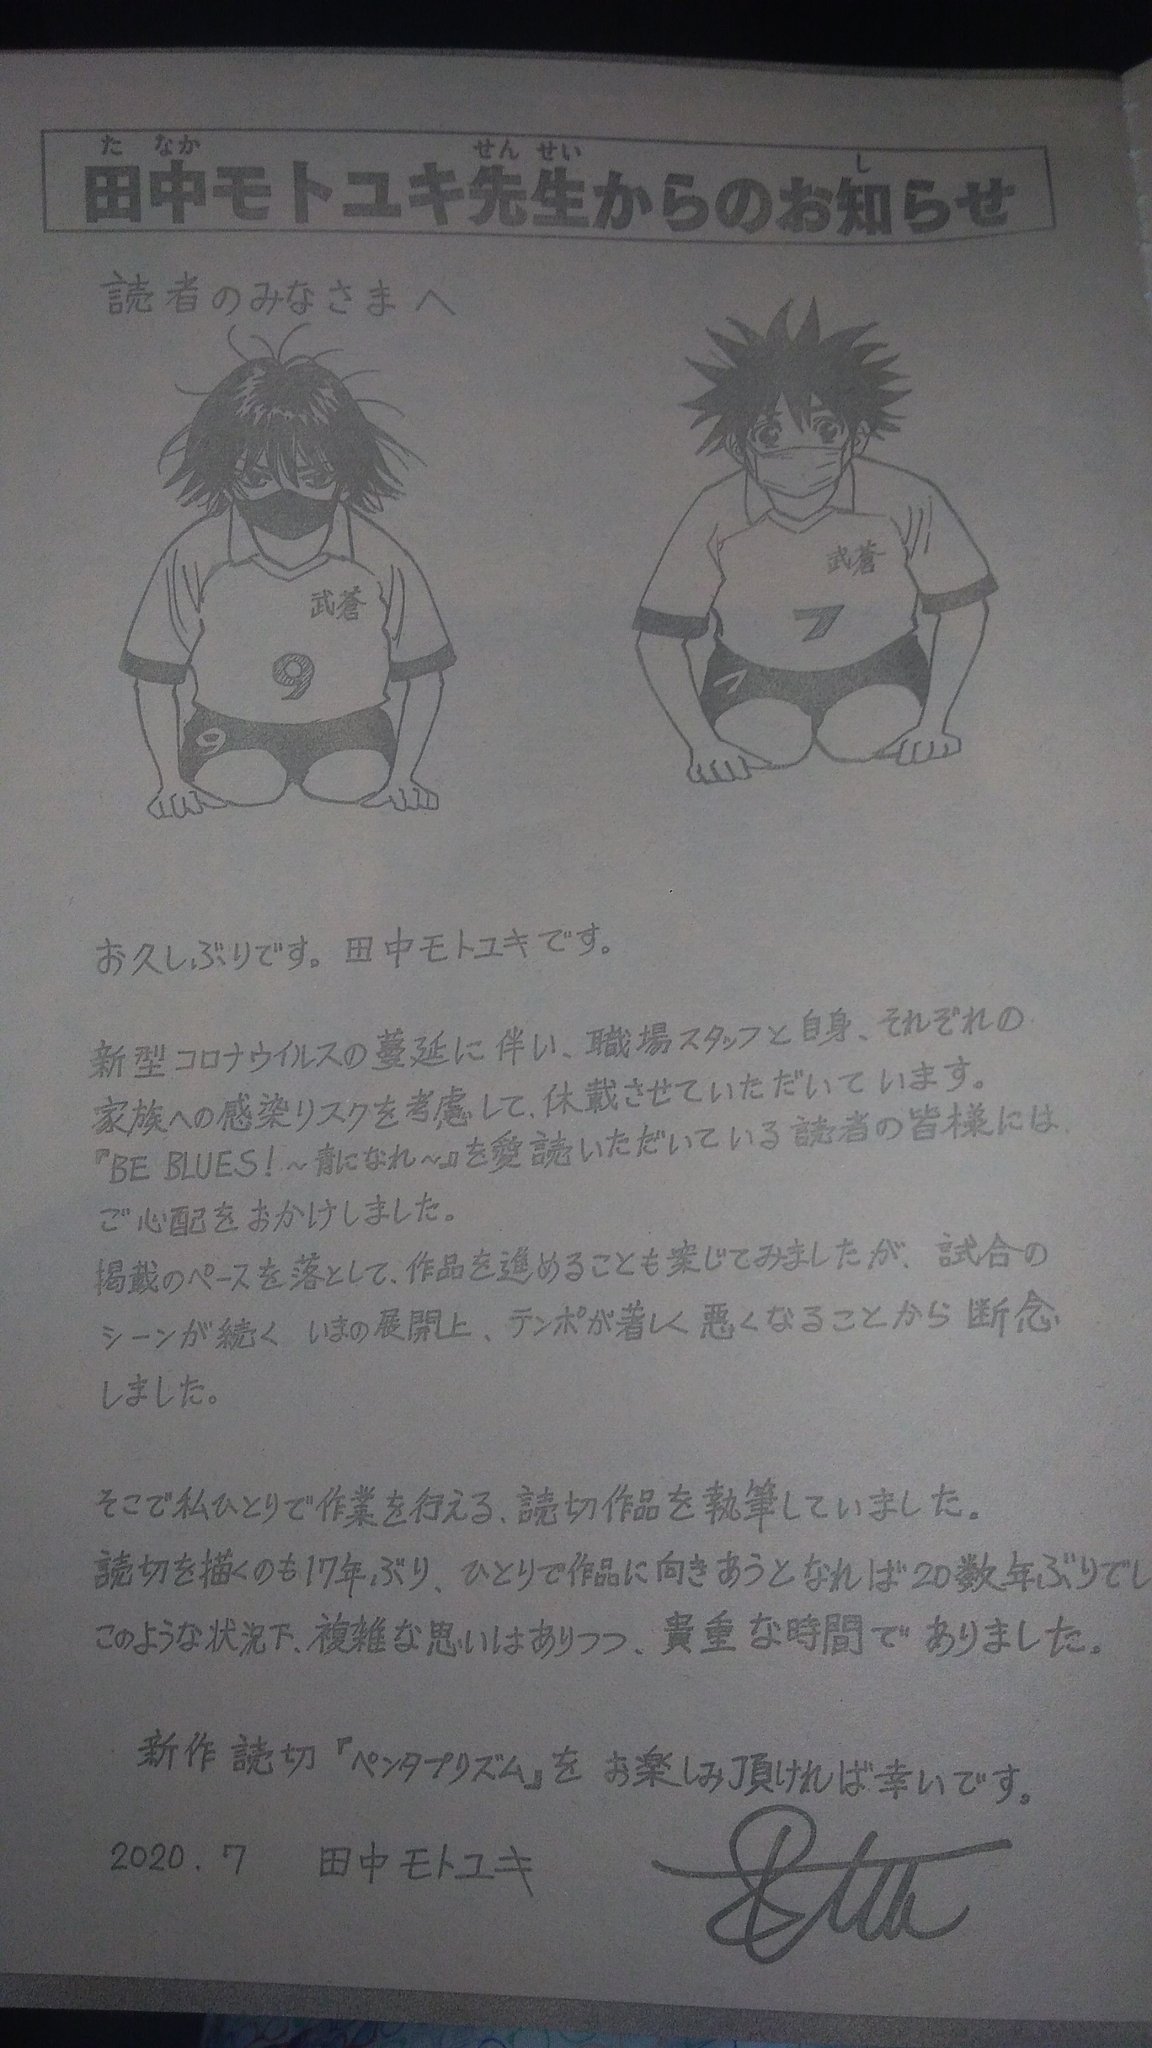 田中モトユキ先生からのお知らせ
た なか せん せい し
読者のみなさまへ
武蒼
9
9
武蒼
7
7
お久しぶりです。田中モトユキです。
新型コロナウイルスの蔓延に伴い、職場スタッフと自身、それぞれの
家族への感染リスクを考慮して、休載させていただいています。
『BE BLUES!～青になれ～』を愛読いただいている読者の皆様には、
ご心配をおかけしました。
掲載のペースを落として、作品を進めることも案じてみましたが、試合の
シーンが続く いまの展開上、テンポが著しく悪くなることから断念
しました。
そこで私ひとりで作業を行える、読切作品を執筆していました。
読切を描くのも17年ぶり、ひとりで作品に向きあうとなれば20数年ぶりでし
このような状況下、複雑な思いはありつつ、貴重な時間でありました。
新作読切『ペンタプリズム』をお楽しみ頂ければ幸いです。
2020.7 田中モトユキ